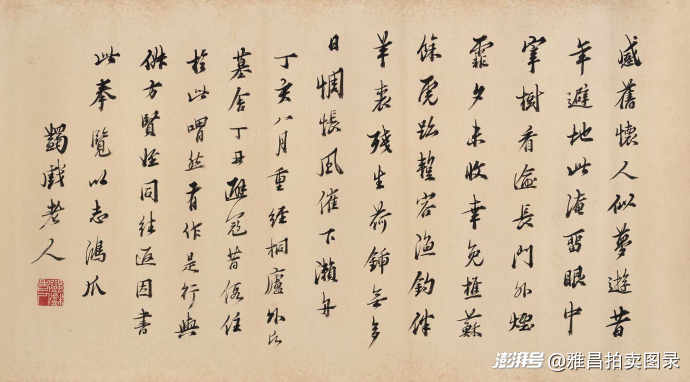 感舊懷人似夢遊昔
年避地此淹留眼中
宰樹看逾長門外煙
霏夕未收幸免樵蘇
餘虎跡容漁釣伴
羊裘殘生荷鍤無多
日惆悵風催下瀨舟
丁亥八月重經桐廬外氏
墓舍丁丑避寇昔住
於此喟然有作是行與
方賢姪同往返因書
此奉覽以志鴻爪
蠲戲老人
澎湃号 @雅昌拍卖图录